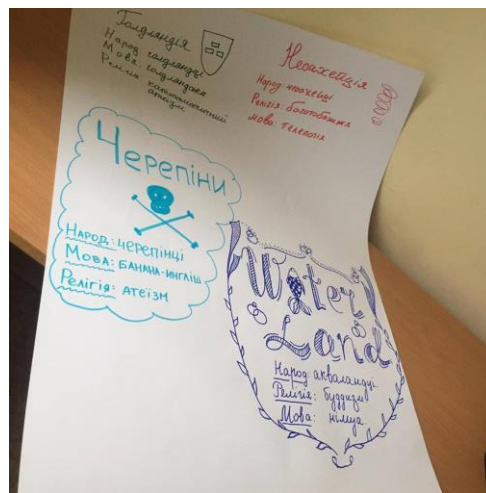 Голдляндія
Народ: голдляндці
Мова: голдляндська
Релігія: католицький
атеїзм
Неоахеиція
Народ: неоахейці
Релігія: багатобожжя
мова: телепатія
Черепіни
Народ: черепінці
Мова: банана-инглиш
Релігія: атеїзм
Water
Land
Народ: акваландці
Релігія: буддизм
Мова: німца